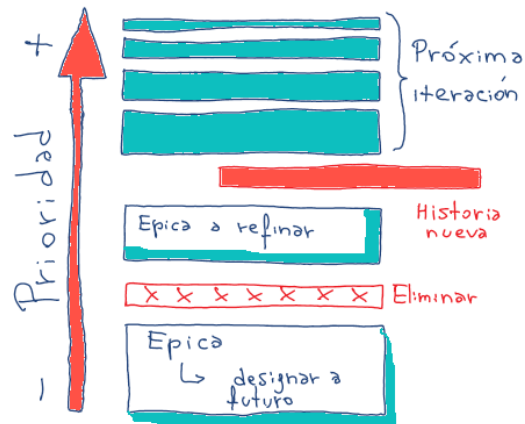 +
Prioridad
-
Próxima
iteración
Historia
nueva
Epica a refinar
x x x x x x x
Eliminar
Epica
designar a
futuro